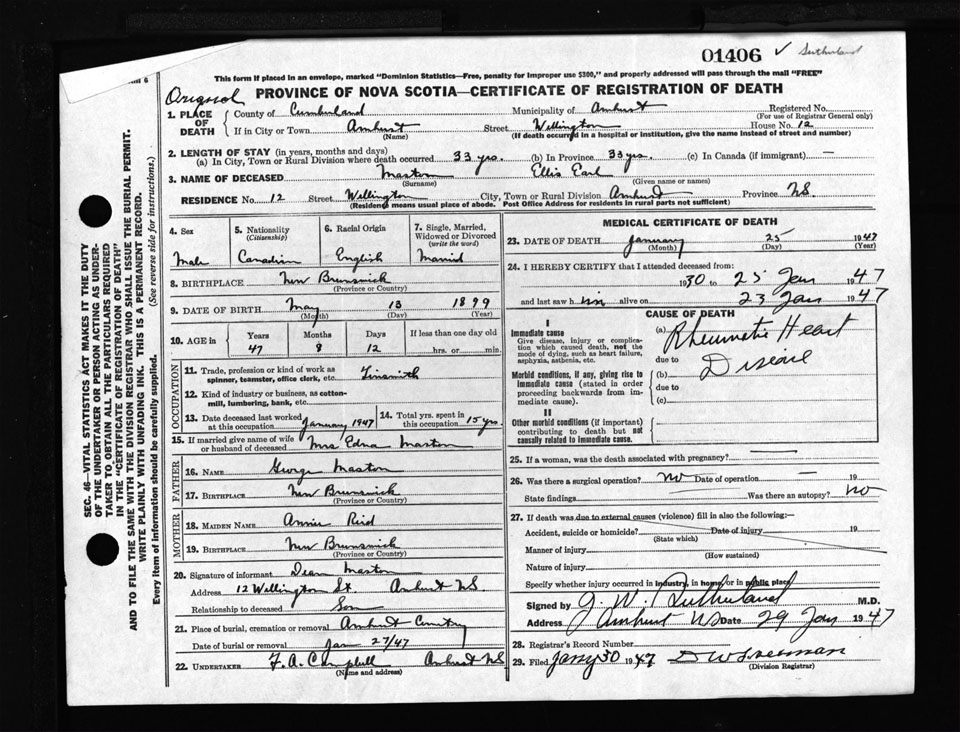 01406 ✓ Sutherland
This form if placed in an envelope, marked "Dominion Statistics—Free, penalty for improper use $300," and properly addressed will pass through the mail "FREE"
Original
PROVINCE OF NOVA SCOTIA—CERTIFICATE OF REGISTRATION OF DEATH
1. PLACE OF DEATH
County of Cumberland Municipality of Amherst Registered No.
(For use of Registrar General only)
If in City or Town Amherst Street Wellington House No. 12
(Name) (If death occurred in a hospital or institution, give the name instead of street and number)
2. LENGTH OF STAY (in years, months and days)
(a) In City, Town or Rural Division where death occurred 33 yrs. (b) In Province 33 yrs. (c) In Canada (if immigrant) —
3. NAME OF DECEASED Maston Ellis Earl
(Surname) (Given name or names)
RESIDENCE No. 12 Street Wellington City, Town or Rural Division Amherst Province N.S.
(Residence means usual place of abode. Post Office Address for residents in rural parts not sufficient)
4. Sex
Male
5. Nationality
(Citizenship)
Canadian
6. Racial Origin
English
7. Single, Married, Widowed or Divorced
(write the word)
Married
8. BIRTHPLACE New Brunswick
(Province or Country)
9. DATE OF BIRTH May 13 1899
(Month) (Day) (Year)
10. AGE in
Years Months Days If less than one day old
47 8 12 hrs. or min.
OCCUPATION
11. Trade, profession or kind of work as spinner, teamster, office clerk, etc. Tinsmith
12. Kind of industry or business, as cotton-mill, lumbering, bank, etc.
13. Date deceased last worked at this occupation January 1947
14. Total yrs. spent in this occupation 15 yrs.
15. If married give name of wife or husband of deceased Mrs Edna Maston
FATHER
16. NAME George Maston
17. BIRTHPLACE New Brunswick
(Province or Country)
MOTHER
18. MAIDEN NAME Annie Reid
19. BIRTHPLACE New Brunswick
(Province or Country)
20. Signature of informant Dean Maston
Address 12 Wellington St. Amherst N.S.
Relationship to deceased Son
21. Place of burial, cremation or removal Amherst Cemetry
Date of burial or removal Jan 27/47
22. UNDERTAKER F. A. Campbell Amherst N.S.
(Name and address)
MEDICAL CERTIFICATE OF DEATH
23. DATE OF DEATH January 25 1947
(Month) (Day) (Year)
24. I HEREBY CERTIFY that I attended deceased from:
1930 to 25 Jan 1947
and last saw him alive on 23 Jan 1947
CAUSE OF DEATH
I
Immediate cause
Give disease, injury or complication which caused death, not the mode of dying, such as heart failure, asphyxia, asthenia, etc.
(a) Rheumatic Heart
due to
Disease
Morbid conditions, if any, giving rise to immediate cause (stated in order proceeding backwards from immediate cause).
(b)
due to
(c)
II
Other morbid conditions (if important) contributing to death but not causally related to immediate cause.
25. If a woman, was the death associated with pregnancy? —
26. Was there a surgical operation? no Date of operation — 19
State findings Was there an autopsy? no
27. If death was due to external causes (violence) fill in also the following:—
Accident, suicide or homicide? Date of injury 19
(State which)
Manner of injury
(How sustained)
Nature of injury
Specify whether injury occurred in industry, in home or in public place
Signed by J. W. Sutherland M.D.
Address Amherst NS Date 29 Jan 1947
28. Registrar's Record Number
29. Filed Jany 30 1947
(Division Registrar)
SEC. 46—VITAL STATISTICS ACT MAKES IT THE DUTY
OF THE UNDERTAKER OR PERSON ACTING AS UNDER-
TAKER TO OBTAIN ALL THE PARTICULARS REQUIRED
IN THE "CERTIFICATE OF REGISTRATION OF DEATH"
AND TO FILE THE SAME WITH THE DIVISION REGISTRAR WHO SHALL ISSUE THE BURIAL PERMIT.
WRITE PLAINLY WITH UNFADING INK. THIS IS A PERMANENT RECORD.
Every item of information should be carefully supplied. (See reverse side for instructions.)